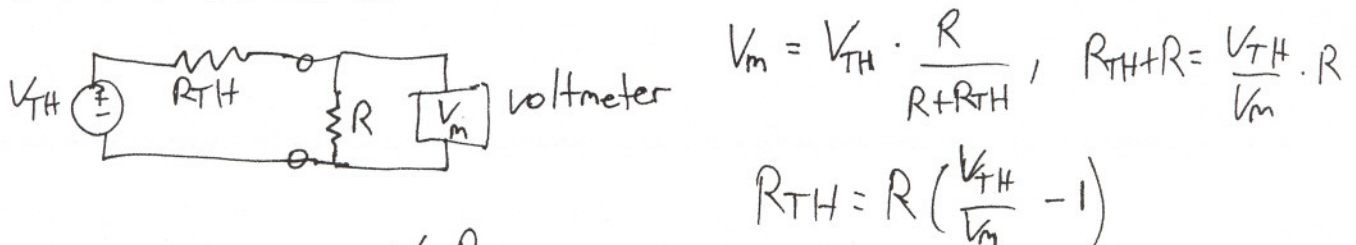 V_TH R_TH R V_m voltmeter
V_m = V_TH · R / (R+R_TH) , R_TH+R = V_TH / V_m · R
R_TH = R (V_TH / V_m - 1)